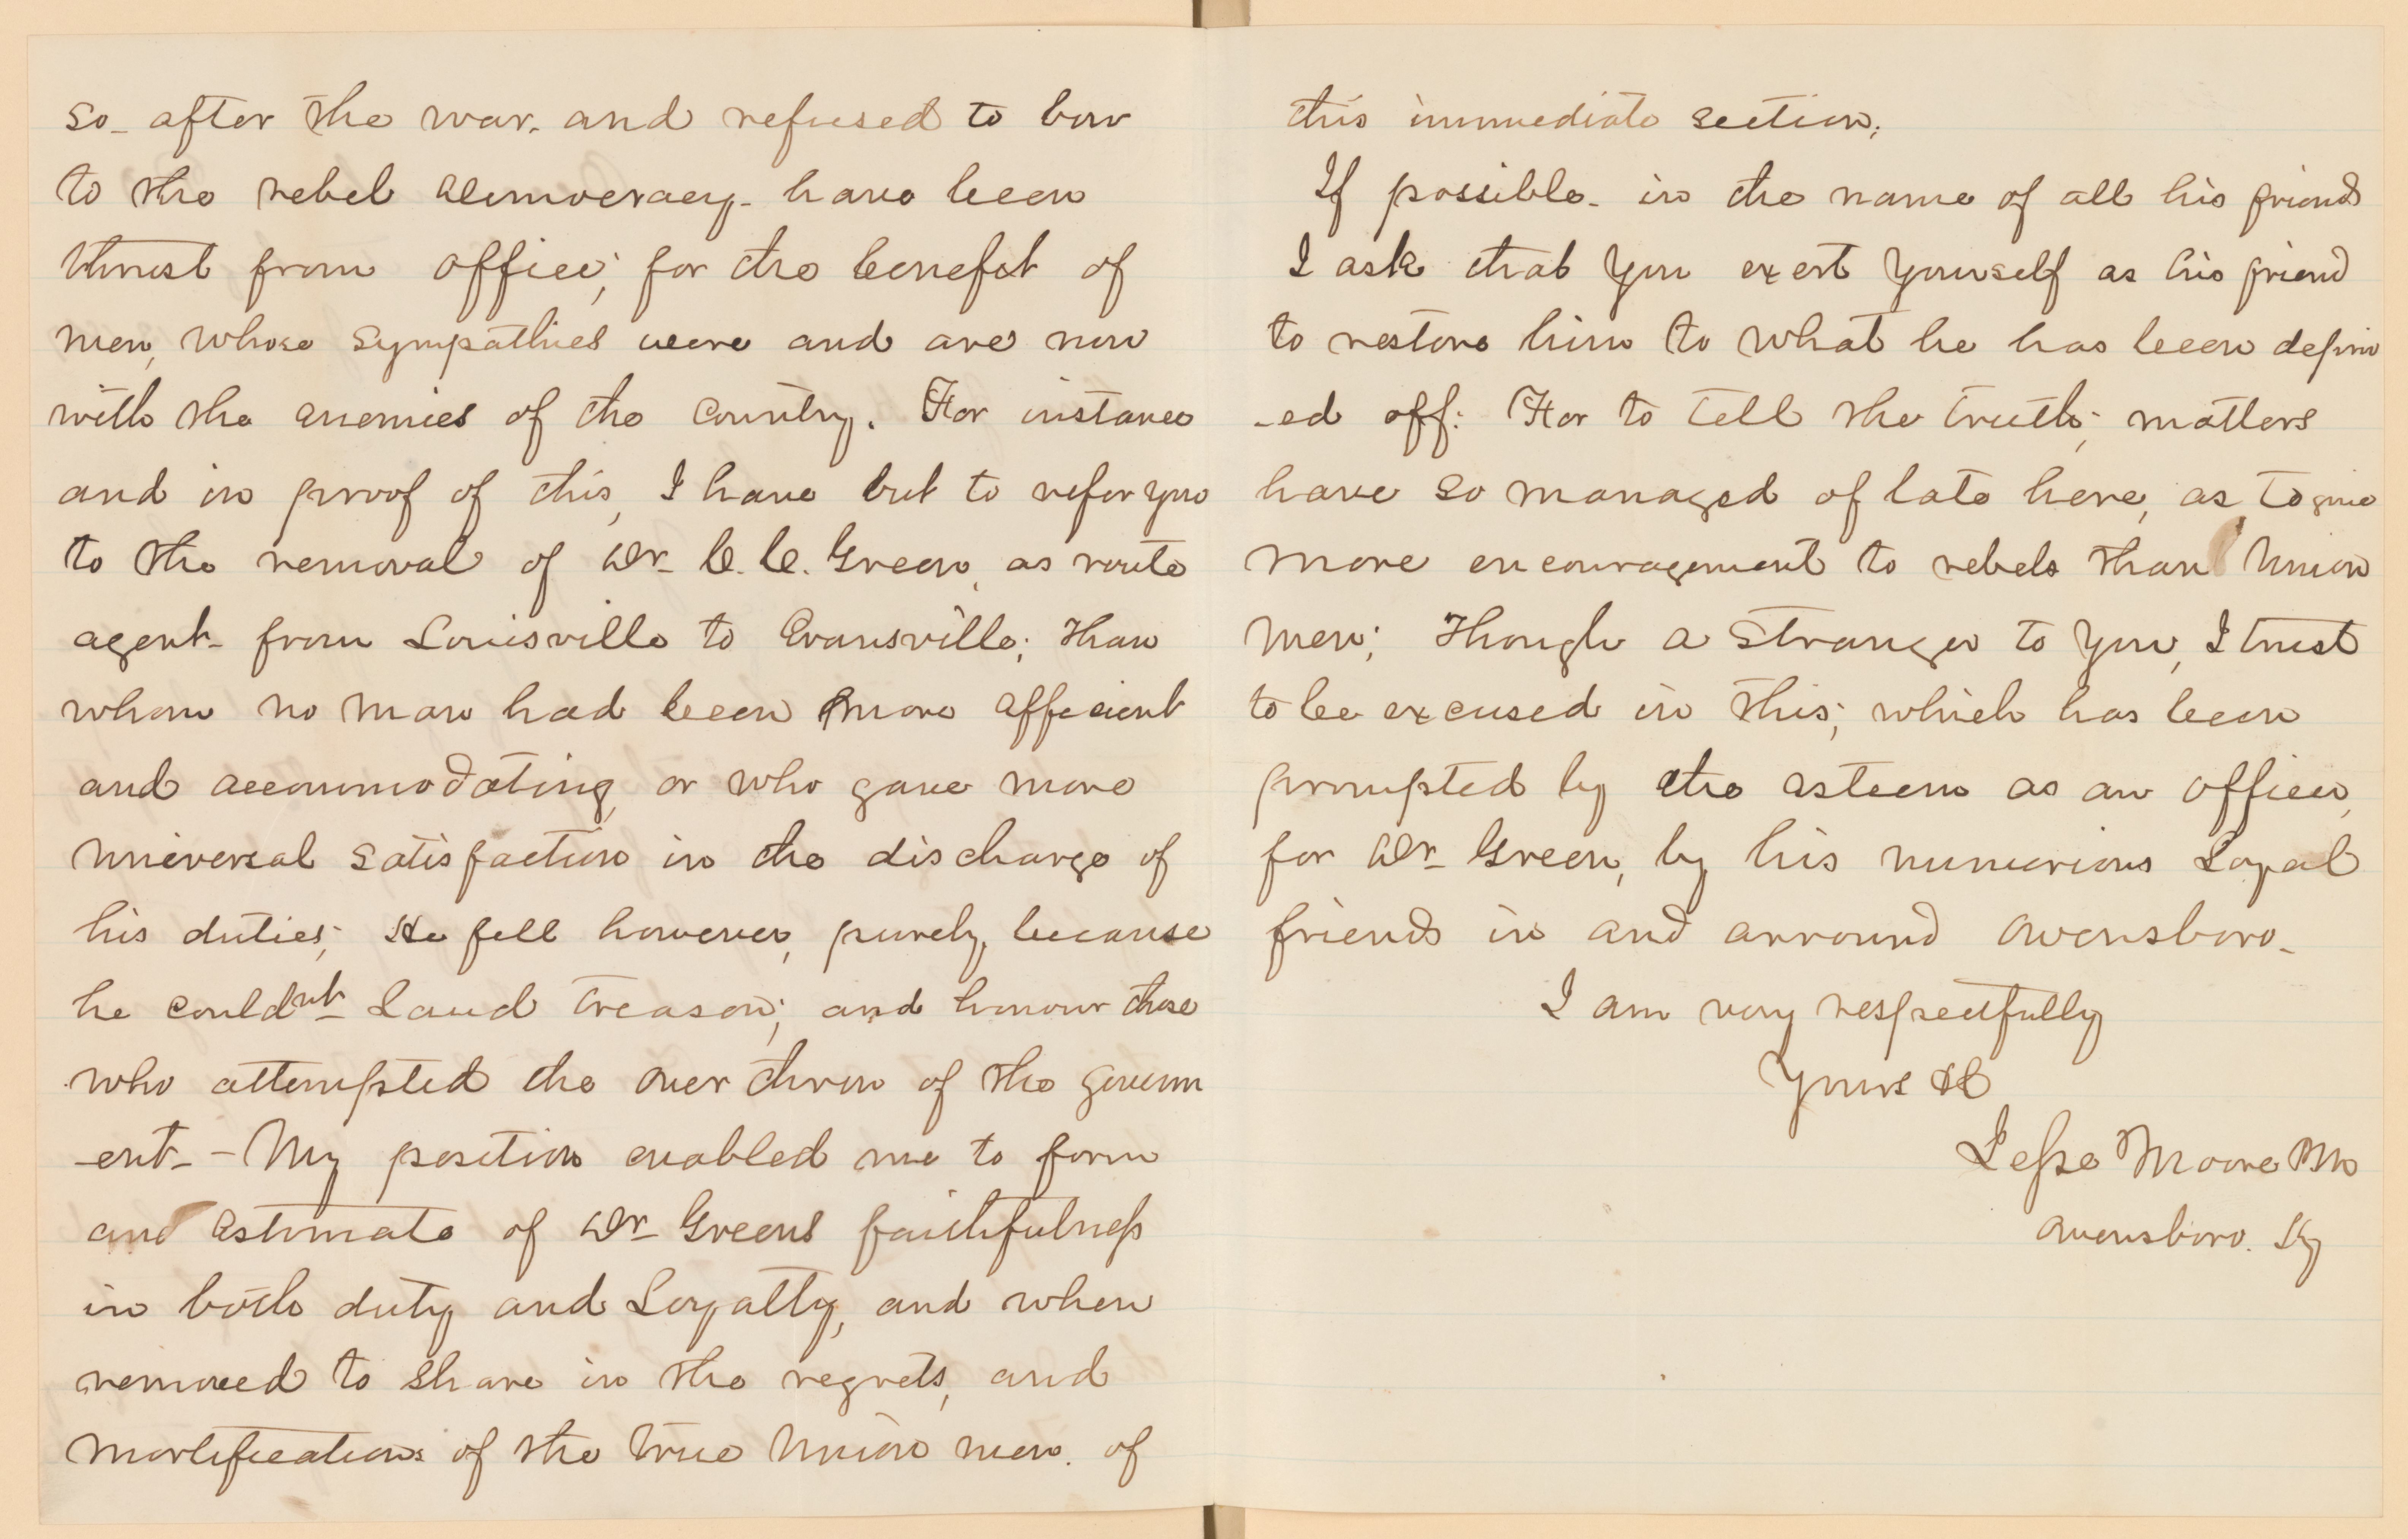 so- after the war. and refused to bow
to the rebel democracy- have been
thrust from office; for the benefit of
men, whose sympathies were and are now
with the enemies of the country. For instance
and in proof of this, I have but to refer you
to the removal of Dr- C. C. Green, as route
agent- from Louisville to Evansville; than
whom no man had been more efficient
and accommodating, or who gave more
universal satisfaction in the discharge of
his duties; He fell however, purely, because
he couldnt- Laud treason; and honour those
who attempted the over throw of the governm
-ent- - My position enabled me to form
and estimate of Dr- Greens faithfulness
in both duty and Loyalty, and when
removed to share in the regrets, and
mortifications of the true Union men. of
this immediate section;
If possible- in the name of all his friends
I ask that you exert yourself as his friend
to restore him to what he has been depriv
-ed off: For to tell the truth; matters
have so managed of late here, as to give
more encouragement to rebels than Union
men; Though a stranger to you, I trust
to be excused in this; which has been
prompted by the esteem as an officer,
for Dr- Green, by his numerious Loyal
friends in and arround Owensboro-
I am very respectfully
Yours &c
Jesse Moore MD
Owensboro. Ky